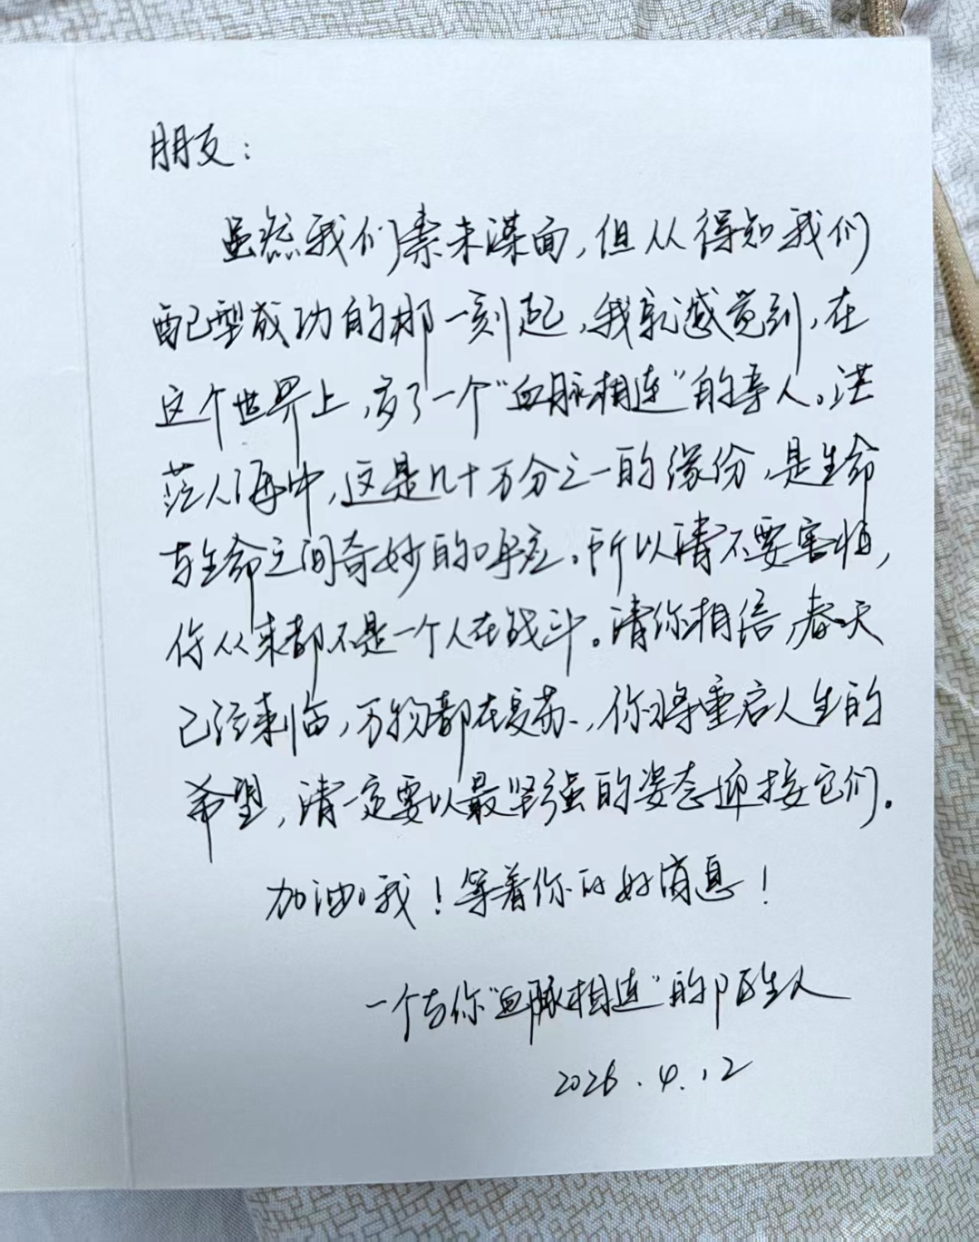 朋友：
虽然我们素未谋面，但从得知我们
配型成功的那一刻起，我就感觉到，在
这个世界上，多了一个“血脉相连”的亲人。茫
茫人海中，这是几十万分之一的缘份，是生命
与生命之间奇妙的呼应。所以请不要害怕，
你从来都不是一个人在战斗。请你相信，春天
已经来临，万物都在复苏，你将重启人生的
希望，请一定要以最坚强的姿态迎接它们。
加油哦！等着你的好消息！
一个与你“血脉相连”的陌生人
2026.4.12